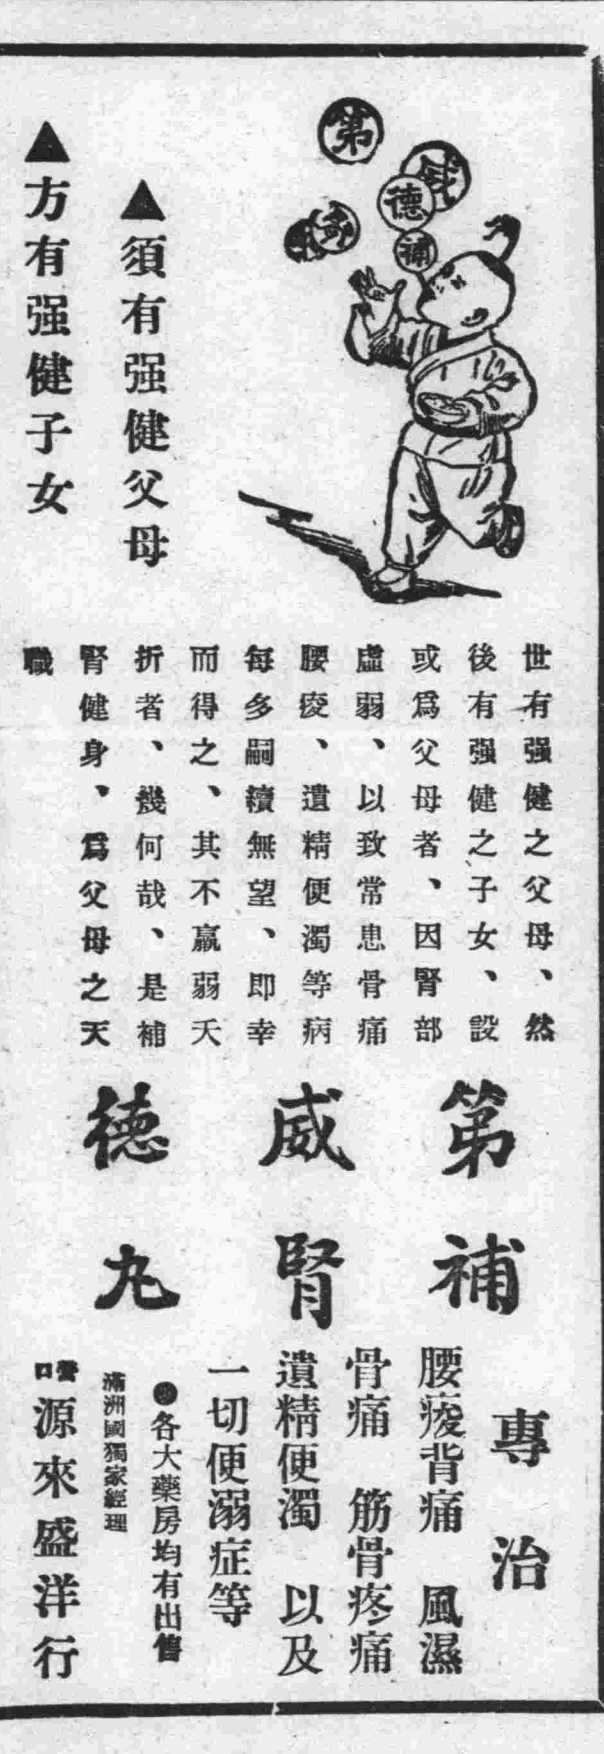 ▲須有强健父母
▲方有强健子女
第
威
德
補
世有强健之父母、然
後有强健之子女、設
或爲父母者、因腎部
虛弱、以致常患骨痛
腰痠、遺精便濁等病
每多嗣續無望、即幸
而得之、其不羸弱夭
折者、幾何哉、是補
腎健身、爲父母之天
職
第威德
補腎丸
專治
腰痠背痛 風濕
骨痛 筋骨疼痛
遺精便濁 以及
一切便溺症等
●各大藥房均有出售
滿洲國獨家經理
營口
源來盛洋行